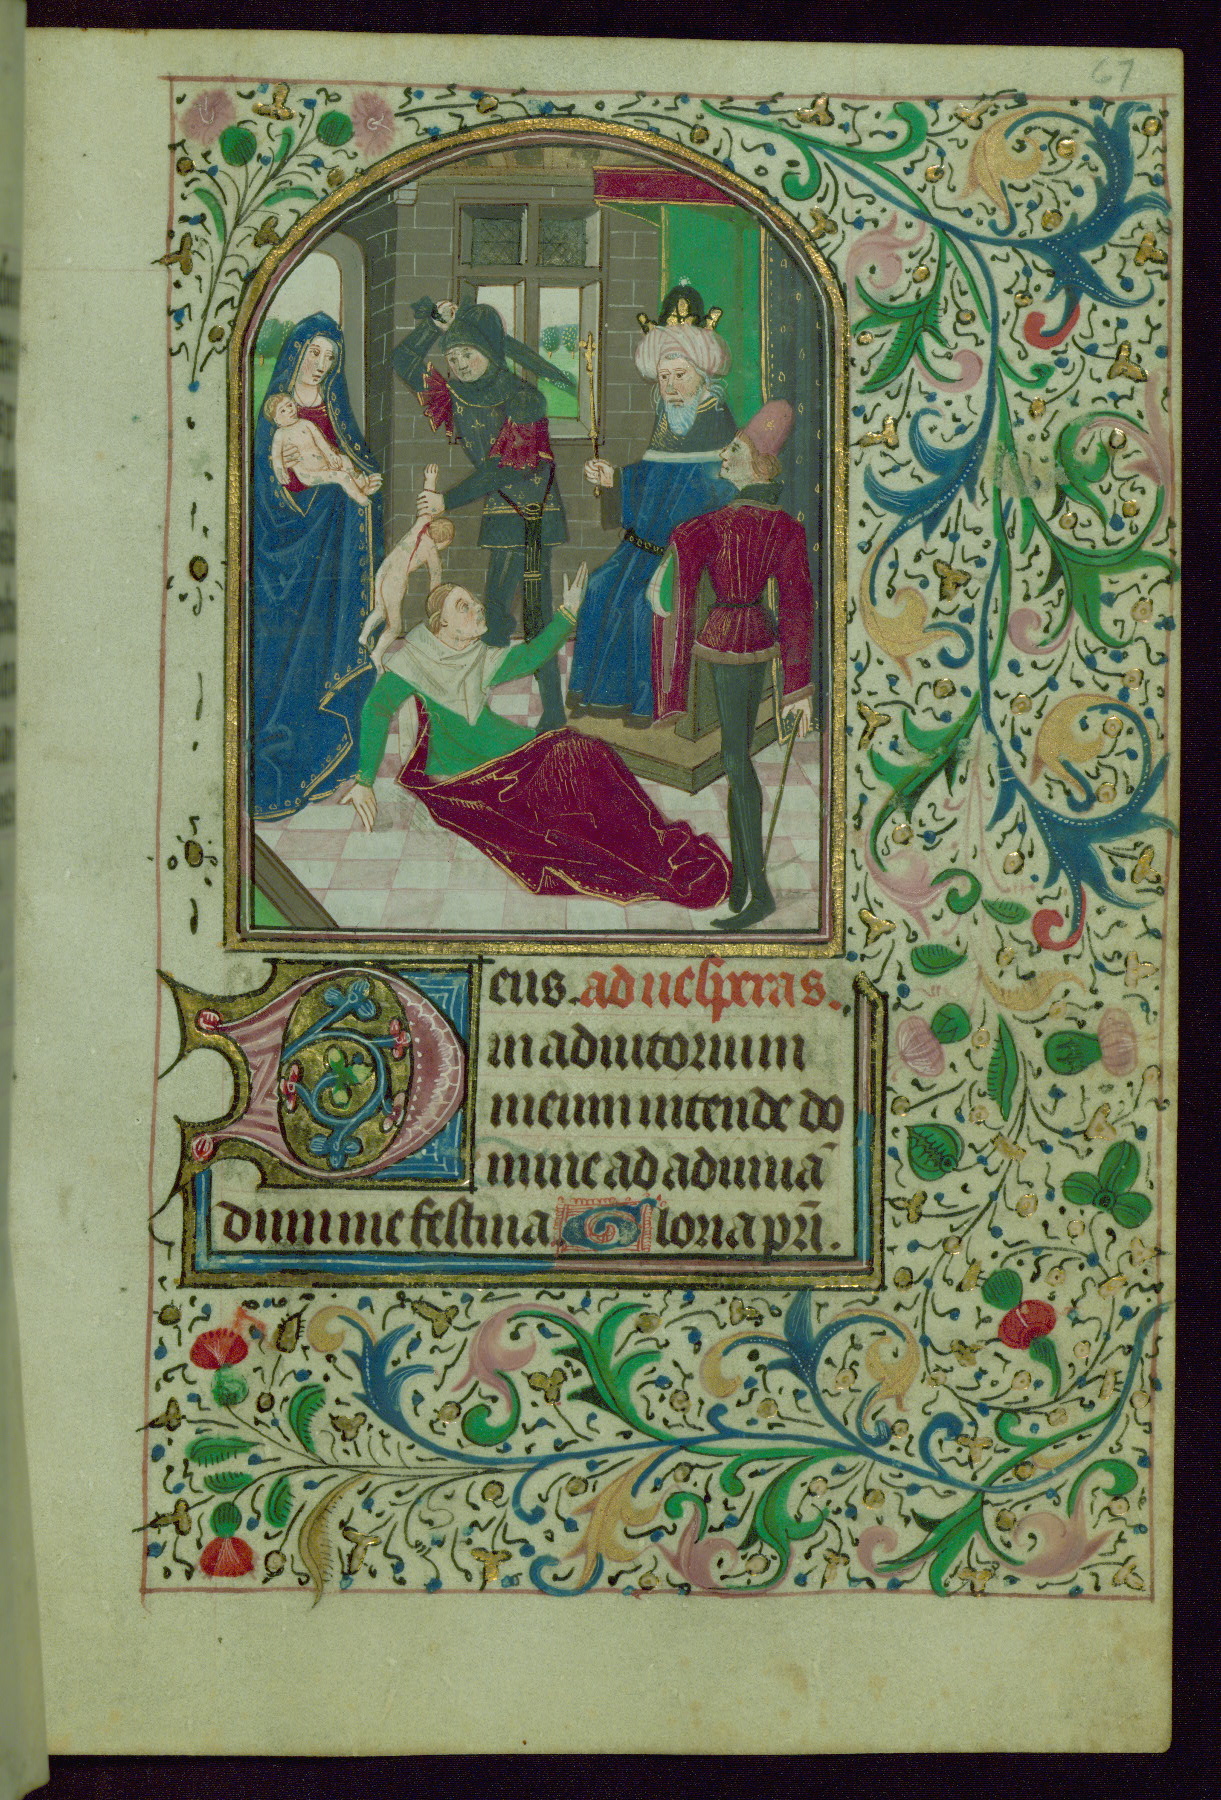 67
Deus. ad uesperas.
in adiutorium
meum intende do
mine ad adiuuā
dum me festina. Gloria pr̄i.